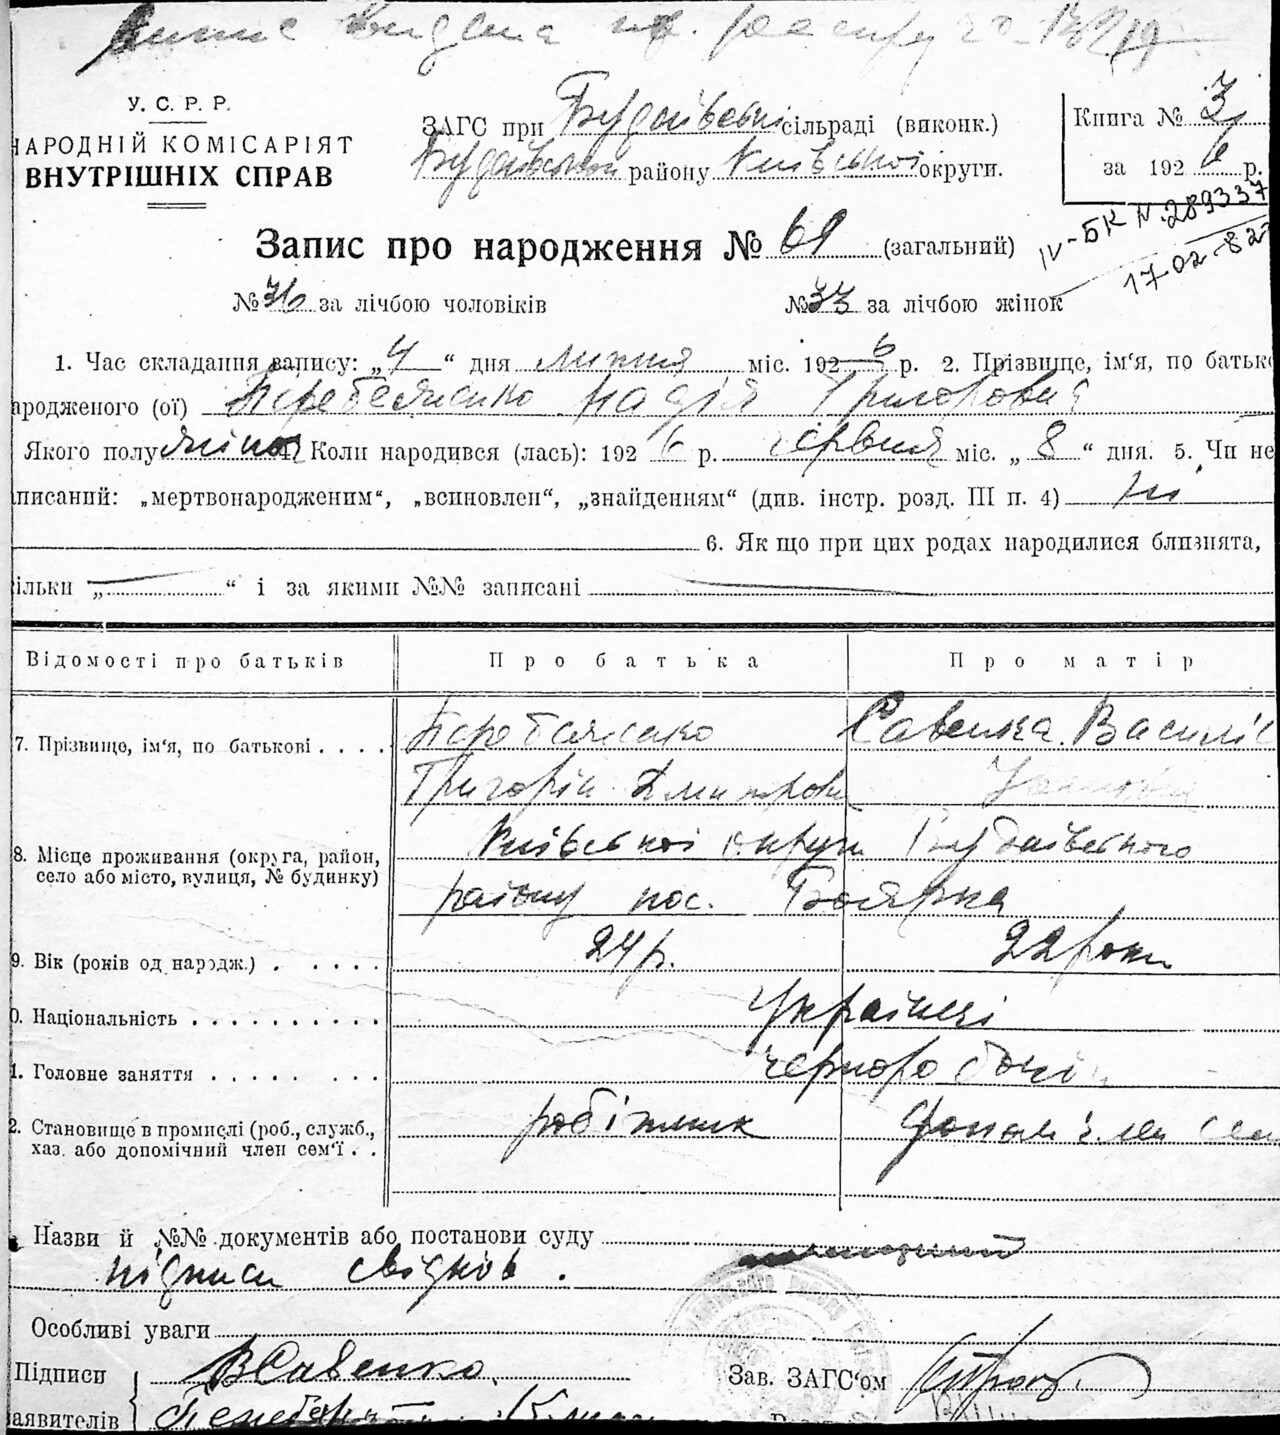 У. С. Р. Р.
НАРОДНІЙ КОМІСАРІЯТ
ВНУТРІШНІХ СПРАВ
ЗАГС при Будаївські сільраді (виконк.)
Будаївськой району Київської округи.
Книга № 3
за 1926 р.
IV-БК № 289337
17-02-82
Запис про народження № 69 (загальний)
№ 36 за лічбою чоловіків № 33 за лічбою жінок
1. Час складання запису: „4“ дня липня міс. 1926 р. 2. Прізвище, ім‘я, по батьк
ародженого (ої) Перебеяненко Надія Григоровна
Якого полу жіноч 4. Коли народився (лась): 1926 р. червня міс. „8“ дня. 5. Чи не
писаний: „мертвонародженим“, „всиновлен“, „знайденням“ (див. інстр. розд. III п. 4) ні
6. Як що при цих родах народилися близнята,
ільки „ “ і за якими №№ записані
Відомості про батьків Про батька Про матір
7. Прізвище, ім‘я, по батькові . . . . Савенка Василіс
Григорій Дмитрови
8. Місце проживання (округа, район, село або місто, вулиця, № будинку) Київської округи Будаївського
району пос. Боярка
9. Вік (років од народж.) 24 р. 22 роки
0. Національність Українці
1. Головне заняття чорноробочі
2. Становище в промислі (роб., служб., хаз. або допомічний член сем‘ї . . робітник допом. член сем
Назви й №№ документів або постанови суду
підписи свідків.
Особливі уваги
Підписи ВСавенко Зав. ЗАГС‘ом
аявителів